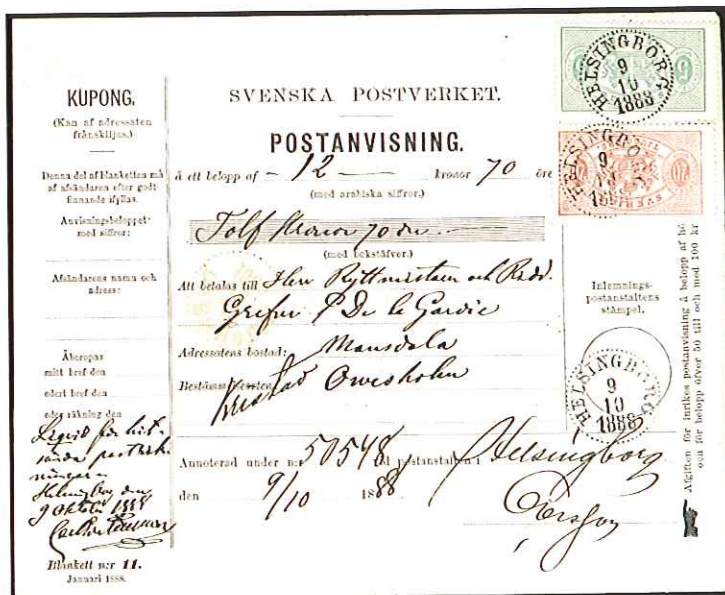 KUPONG.
(Kan af adressaten
frånskiljas.)
Denna del af blanketten må
af afsändaren efter godt
finnande ifyllas.
Anvisningsbeloppet
med siffror:
Afsändarens namn och
adress:
Åberopas
mitt bref den
edert bref den
eder räkning den
Helsingborg den
9 Oktober 1888
Blankett n:r 11.
Januari 1888.
SVENSKA POSTVERKET.
POSTANVISNING.
å ett belopp af - 12 - kronor 70 öre
(med arabiska siffror.)
Tolf Kronor 70 öre
(med bokstäfver.)
Att betalas till Herr Ryttmästaren och Ridd.
Grefve P De la Gardie
Adressatens bostad: Maусdala
Bestämmelseorten: Owesholm
Annoterad under n:r 50548 vid postanstalten i Helsingborg
den 9/10 1888
HELSINGBORG
9
10
1888
HELSINGBORG
9
10
1888
SVERIGE
20
Inlemnings-
postanstaltens
stämpel.
HELSINGBORG
9
10
1888
Afgiften för inrikes postanvisning å belopp af hö
och för belopp öfver 50 till och med 100 kr